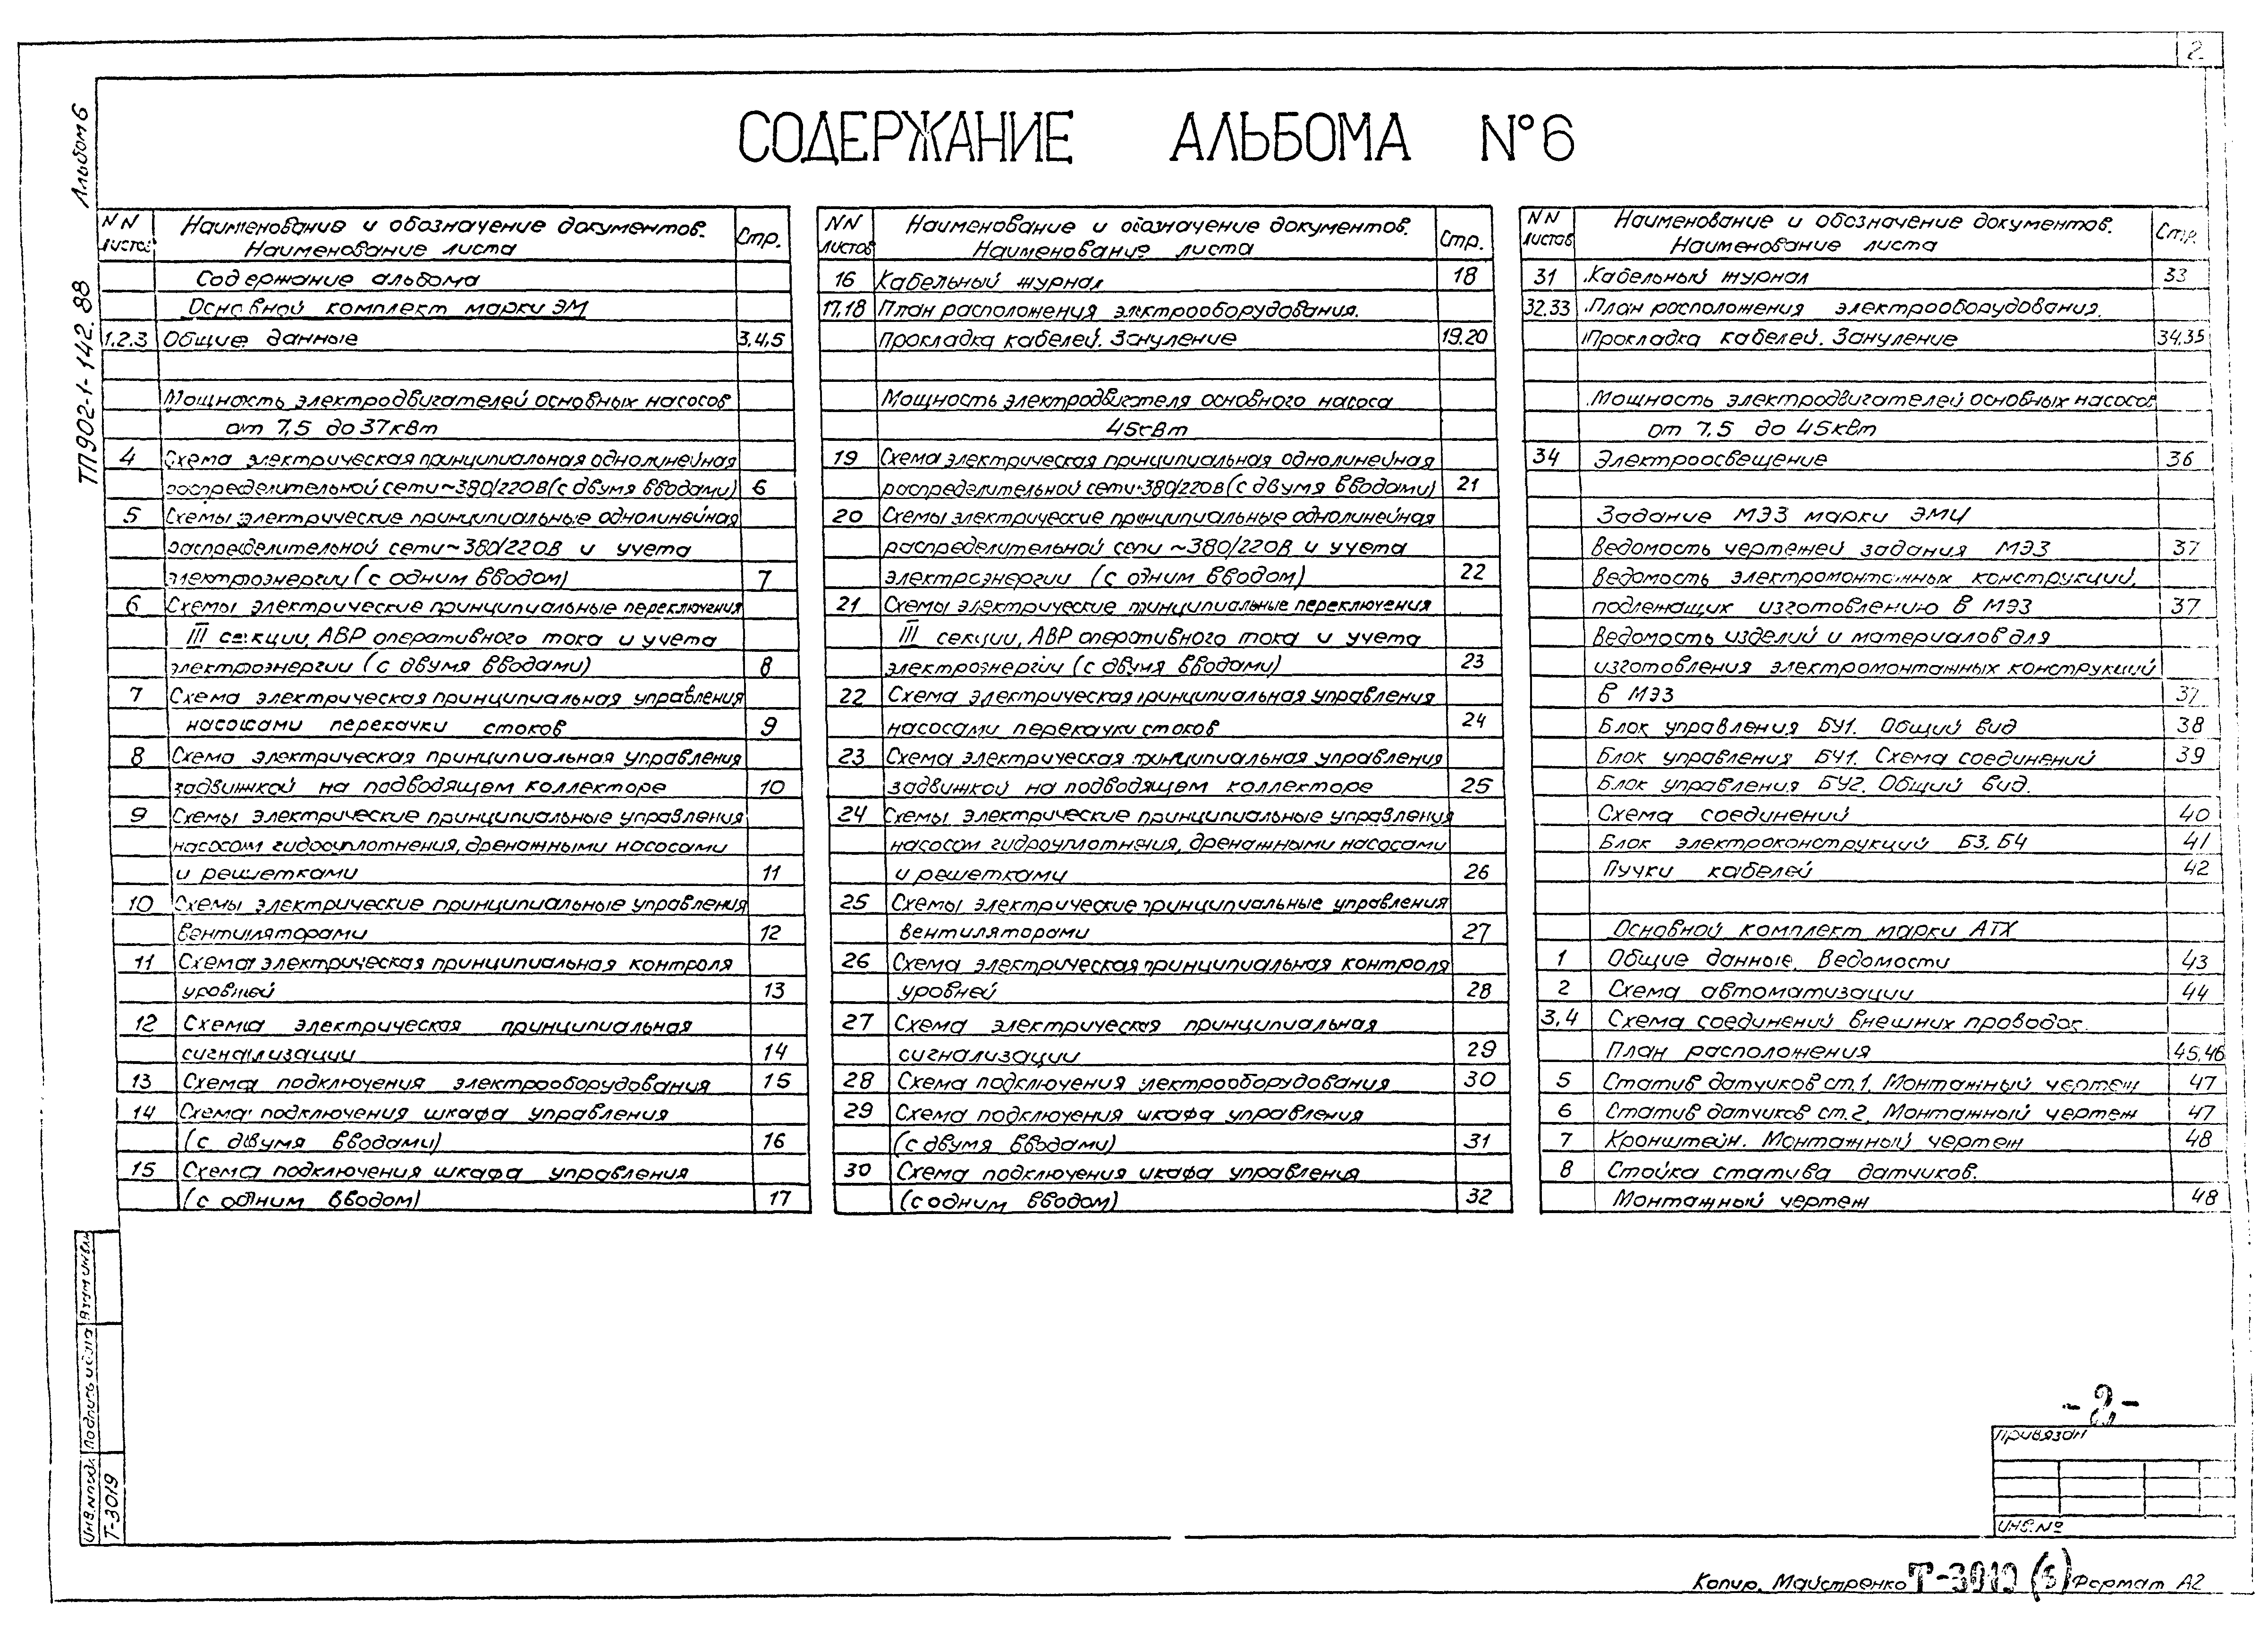 2
СОДЕРЖАНИЕ АЛЬБОМА N°6
Альбом 6
ТП902-1-142.88
NN листов Наименование и обозначение документов. Наименование листа Стр.
Содержание альбома
Основной комплект марки ЭМ
1.2.3 Общие данные 3,4,5
Мощность электродвигателей основных насосов
от 7,5 до 37кВт
4 Схема электрическая принципиальная однолинейная
распределительной сети ~380/220В (с двумя вводами) 6
5 Схемы электрические принципиальные однолинейная
распределительной сети ~380/220В и учета
электроэнергии (с одним вводом) 7
6 Схемы электрические принципиальные переключения
III секции, АВР оперативного тока и учета
электроэнергии (с двумя вводами) 8
7 Схема электрическая принципиальная управления
насосами перекачки стоков 9
8 Схема электрическая принципиальная управления
задвижкой на подводящем коллекторе 10
9 Схемы электрические принципиальные управления
насосом гидроуплотнения, дренажными насосами
и решетками 11
10 Схемы электрические принципиальные управления
вентиляторами 12
11 Схема электрическая принципиальная контроля
уровней 13
12 Схема электрическая принципиальная
сигнализации 14
13 Схема подключения электрооборудования 15
14 Схема подключения шкафа управления
(с двумя вводами) 16
15 Схема подключения шкафа управления
(с одним вводом) 17
NN листов Наименование и обозначение документов. Наименование листа Стр.
16 Кабельный журнал 18
17,18 План расположения электрооборудования.
Прокладка кабелей. Зануление 19,20
Мощность электродвигателя основного насоса
45кВт
19 Схема электрическая принципиальная однолинейная
распределительной сети ~380/220В (с двумя вводами) 21
20 Схемы электрические принципиальные однолинейная
распределительной сети ~380/220В и учета
электроэнергии (с одним вводом) 22
21 Схемы электрические принципиальные переключения
III секции, АВР оперативного тока и учета
электроэнергии (с двумя вводами) 23
22 Схема электрическая принципиальная управления
насосами перекачки стоков 24
23 Схема электрическая принципиальная управления
задвижкой на подводящем коллекторе 25
24 Схемы электрические принципиальные управления
насосом гидроуплотнения, дренажными насосами
и решетками 26
25 Схемы электрические принципиальные управления
вентиляторами 27
26 Схема электрическая принципиальная контроля
уровней 28
27 Схема электрическая принципиальная
сигнализации 29
28 Схема подключения электрооборудования 30
29 Схема подключения шкафа управления
(с двумя вводами) 31
30 Схема подключения шкафа управления
(с одним вводом) 32
NN листов Наименование и обозначение документов. Наименование листа Стр.
31 Кабельный журнал 33
32.33 План расположения электрооборудования.
Прокладка кабелей. Зануление 34,35
Мощность электродвигателей основных насосов
от 7,5 до 45кВт
34 Электроосвещение 36
Задание МЭЗ марки ЭМИ
Ведомость чертежей задания МЭЗ 37
Ведомость электромонтажных конструкций,
подлежащих изготовлению в МЭЗ 37
Ведомость изделий и материалов для
изготовления электромонтажных конструкций
в МЭЗ 37
Блок управления БУ1. Общий вид 38
Блок управления БУ1. Схема соединений 39
Блок управления БУ2. Общий вид.
Схема соединений 40
Блок электроконструкций Б3, Б4 41
Пучки кабелей 42
Основной комплект марки АТХ
1 Общие данные. Ведомости 43
2 Схема автоматизации 44
3,4 Схема соединений внешних проводок.
План расположения 45,46
5 Статив датчиков ст.1. Монтажный чертеж 47
6 Статив датчиков ст.2. Монтажный чертеж 47
7 Кронштейн. Монтажный чертеж 48
8 Стойка статива датчиков.
Монтажный чертеж 48
Взам инв.№
Подпись и дата
Инв.N подл.
Т-3019
-2-
Привязан
Инв.№
Копир. Майстренко Т-3019 (6) Формат А2